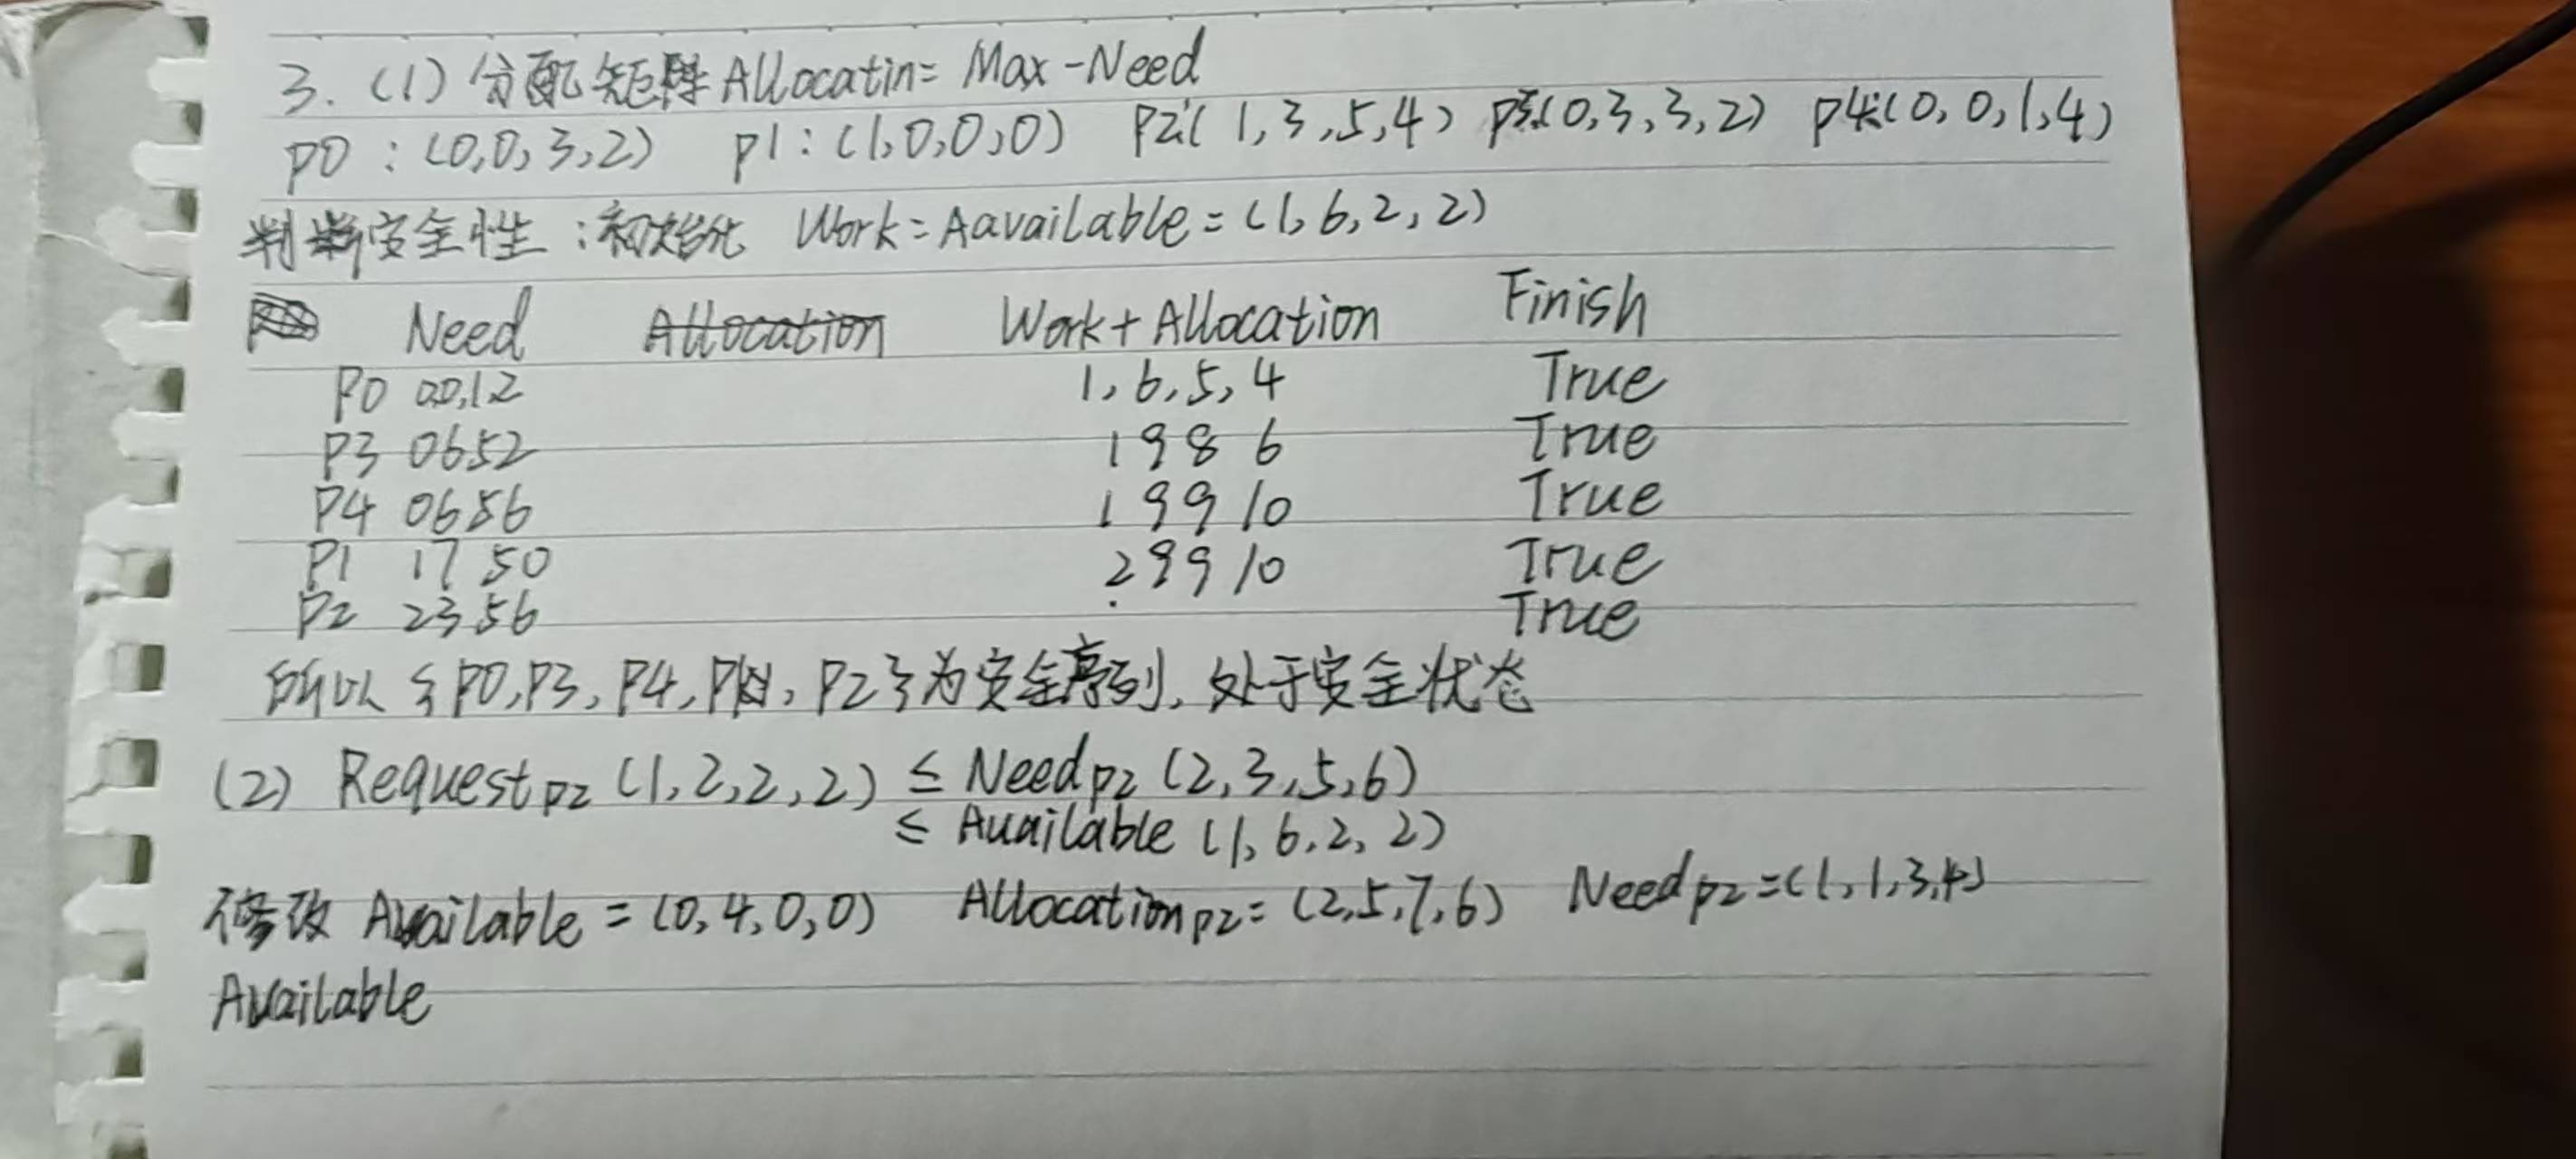 3. (1) 分配矩阵 Allocatin = Max - Need
P0 : (0,0,3,2) P1 : (1,0,0,0) P2:( 1,3,5,4) P3:(0,3,3,2) P4:(0,0,1,4)
判断安全性 : 初始化 Work = Aavailable = (1,6,2,2)
Need Allocation Work + Allocation Finish
P0 0,0,1,2 1,6,5,4 True
P3 0652 1 9 8 6 True
P4 0656 1 9 9 10 True
P1 1750 2 9 9 10 True
P2 2356 True
所以 {P0,P3,P4,P1,P2}为安全序列,处于安全状态
(2) Request P2 (1,2,2,2) ≤ Need P2 (2,3,5,6)
≤ Available (1,6,2,2)
修改 Available = (0,4,0,0) Allocation P2 = (2,5,7,6) Need P2 = (1,1,3,4)
Available